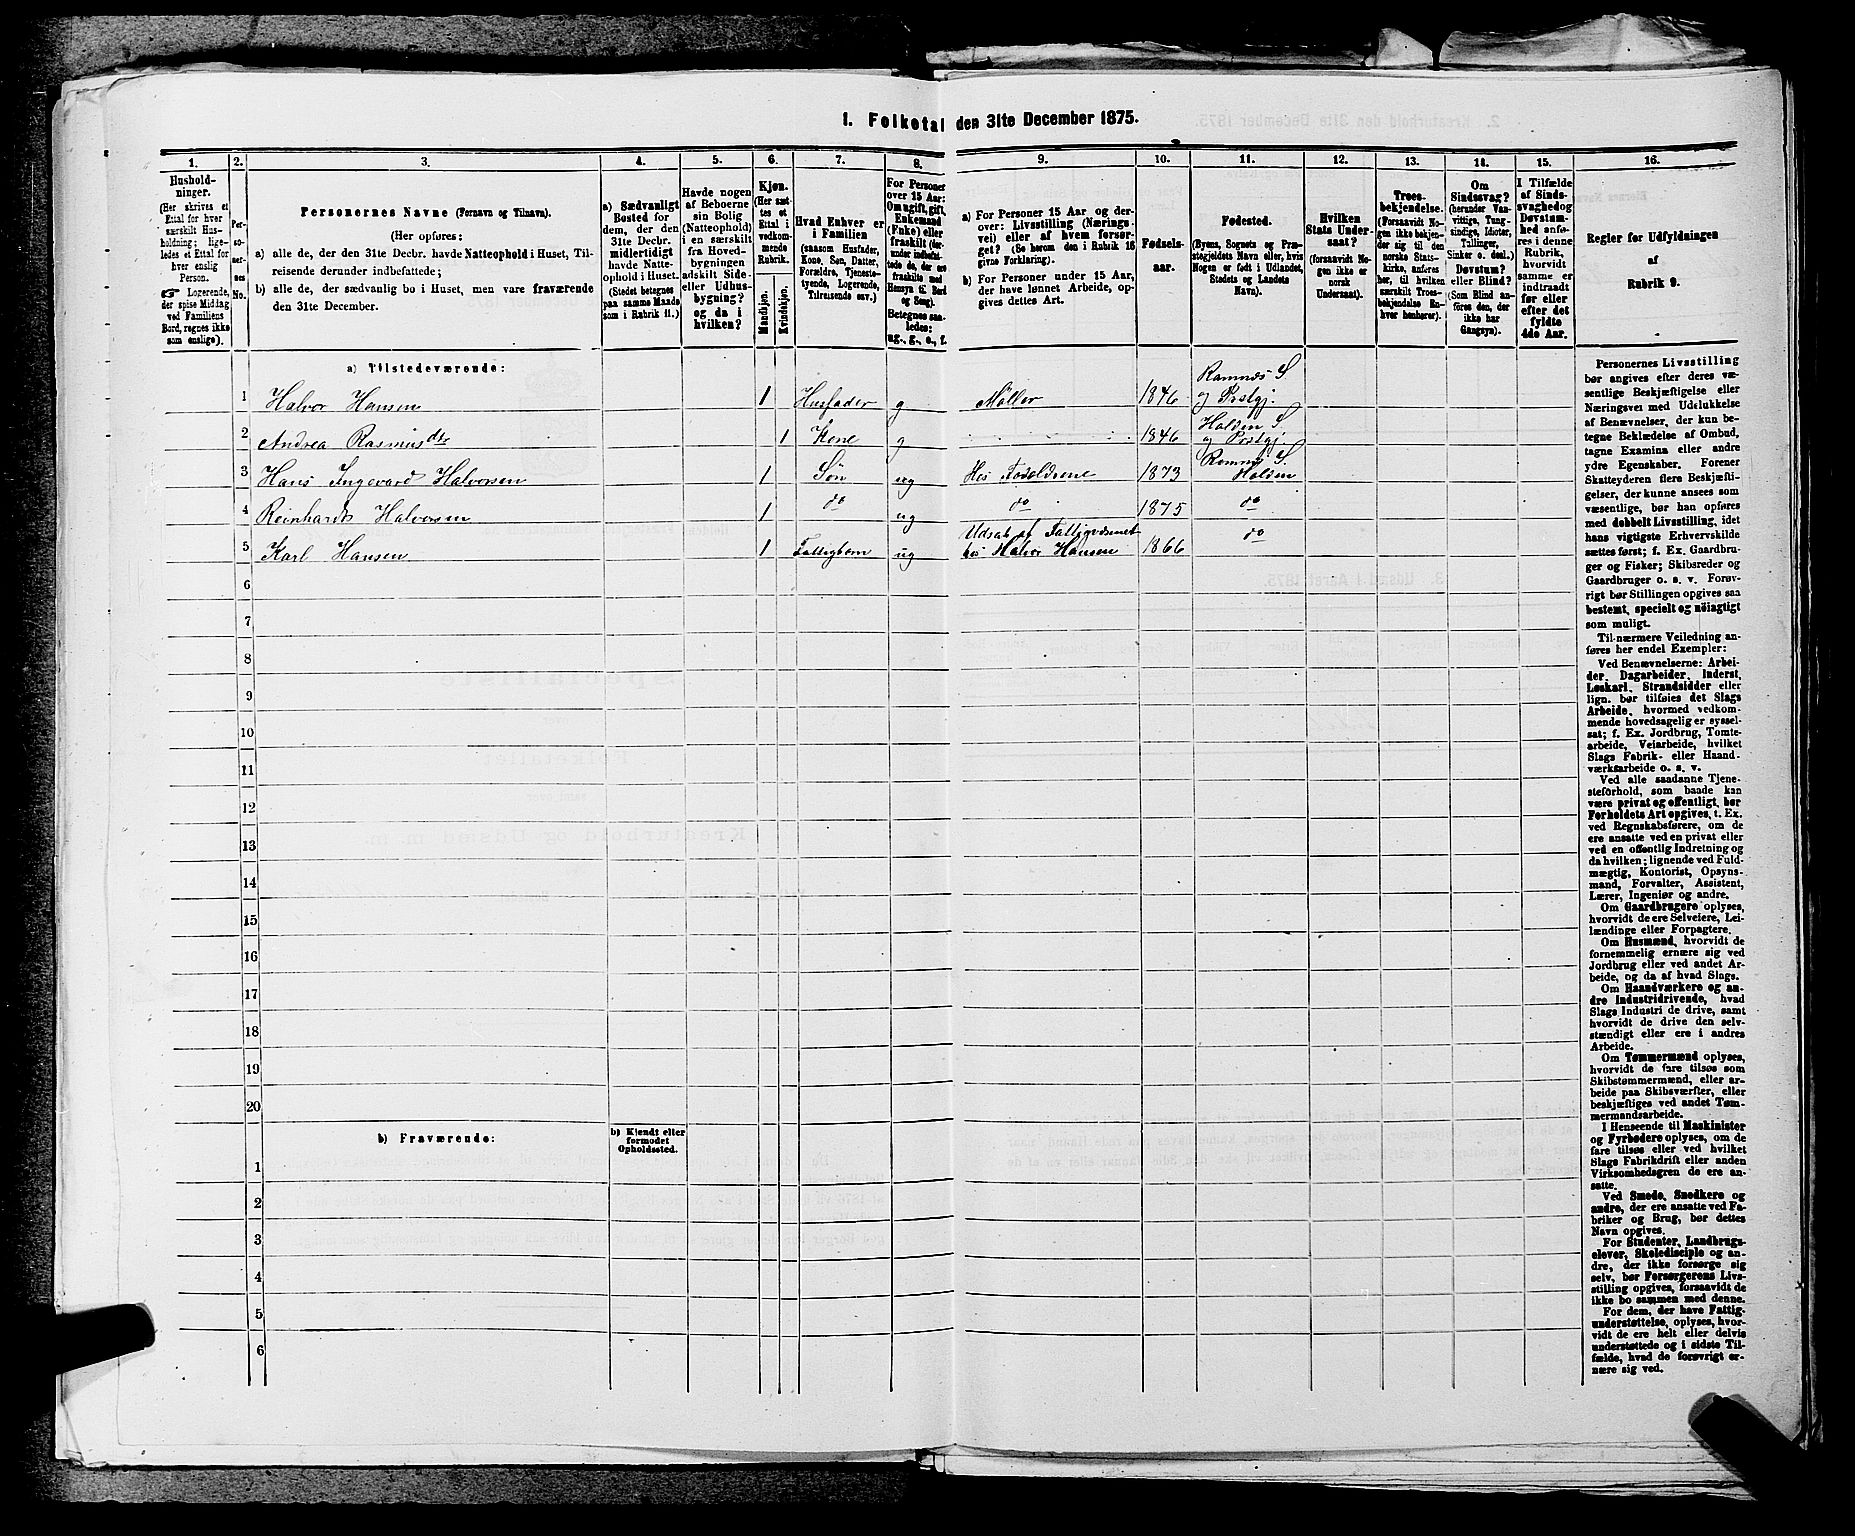 1. Folketal den 31te December 1875.
1.
2.
3.
4.
5.
6.
7.
8.
9.
10.
11.
12.
13.
14.
15.
16.
Hushold-
ninger.
(Her skrives et
Ettal for hver
særskilt Hus-
holdning; lige-
ledes et Ettal for
hver enslig
Person.
☞ Logerende,
der spise Middag
ved Familiens
Bord, regnes ikke
som enslige).
Per-
so-
ner-
nes
No.
Personernes Navne (Fornavn og Tilnavn).
(Her opføres:
a) alle de, der den 31te Decbr. havde Natteophold i Huset, Til-
reisende derunder indbefattede;
b) alle de, der sædvanlig bo i Huset, men vare fraværende
den 31te December.
a) Sædvanligt
Bosted for
dem, der den
31te Decbr.
midlertidigt
havde Natte-
ophold i Huset.
(Stedet betegnes
paa samme Maade
som i Rubrik 11.)
Havde nogen
af Beboerne
sin Bolig
(Natteophold)
i en særskilt
fra Hoved-
bygningen
adskilt Side-
eller Udhus-
bygning?
og da i
hvilken?
Kjøn.
(Her sæt-
tes et
Ettal i
vedkom-
mende
Rubrik.
Mandkjøn.
Kvindekjøn.
Hvad Enhver er
i Familien
(saasom Husfader,
Kone, Søn, Datter,
Forældre, Tjeneste-
tyende, Logerende,
Tilreisende osv.)
For Personer
over 15 Aar:
Om ugift, gift,
Enkemand
(Enke) eller
fraskilt (der-
under indbefat-
tede de, der ere
fraskilte med
Hensyn til Bord
og Seng).
Betegnes saa-
ledes:
ug., g., e., f.
a) For Personer 15 Aar og der-
over: Livsstilling (Nærings-
vei) eller af hvem forsør-
get? (Se herom den i Rubrik 16
givne Forklaring).
b) For Personer under 15 Aar,
der have lønnet Arbeide, op-
gives dettes Art.
Fødsels-
aar.
Fødested.
(Byens, Sognets og Præ-
stegjeldets Navn eller, hvis
Nogen er født i Udlandet,
Stedets og Landets
Navn).
Hvilken
Stats Under-
saat?
(forsaavidt No-
gen ikke er
norsk
Undersaat).
Troes-
bekjendelse.
(Forsaavidt No-
gen ikke bekjen-
der sig til den
norske Stats-
kirke, anføres
her, til hvilken
særskilt Troes-
bekjendelse En-
hver henhører).
Om
Sindssvag?
(herunder Van-
vittige, Tung-
sindige, Idioter,
Tullinger,
Sinker o. desl.)
Døvstum?
eller Blind?
(Som Blind an-
føres den, der
ikke har
Gangsyn).
I Tilfælde
af Sinds-
svaghed og
Døvstum-
hed anfø-
res i denne
Rubrik,
hvorvidt
samme er
indtraadt
før eller
efter det
fyldte
4de Aar.
Regler for Udfyldningen
af
Rubrik 9.
a) Tilstedeværende:
1 Halvor Hansen 1 Husfader g Møller 1846 Ramnes S. og Prstgj.
2 Andrea Rasmusdtr 1 Kone g 1846 Holden S. og Prstgj.
3 Hans Ingevard Halvorsen 1 Søn ug Hos Foreldrene 1873 Ramnes S. Holden
4 Reinhardt Halvorsen 1 do ug do 1875 do
5 Karl Hansen 1 Fattigbarn ug Udsat af Fattigvæsenet hos Halvor Hansen 1866 do
6
7
8
9
10
11
12
13
14
15
16
17
18
19
20
b) Fraværende:
b) Kjendt eller
formodet
Opholdssted.
1
2
3
4
5
6
Personernes Livsstilling
bør angives efter deres væ-
sentlige Beskjæftigelse eller
Næringsvei med Udelukkelse
af Benævnelser, der kun be-
tegne Beklædelse af Ombud,
tagne Examina eller andre
ydre Egenskaber. Forener
Skatteyderen flere Beskjæfti-
gelser, der kunne ansees som
væsentlige, bør han opføres
med dobbelt Livsstilling, idet
hans vigtigste Erhvervskilde
sættes først; f. Ex. Gaardbru-
ger og Fisker; Skibsreder og
Gaardbruger o. s. v. Forøv-
rigt bør Stillingen opgives saa
bestemt, specielt og nøiagtigt
som muligt.
Til nærmere Veiledning an-
føres her endel Exempler:
Ved Benævnelserne: Arbei-
der, Dagarbeider, Inderst,
Løskarl, Strandsidder eller
lign. bør tilføies det Slags
Arbeide, hvormed vedkom-
mende hovedsagelig er syssel-
sat; f. Ex. Jordbrug, Tomte-
arbeide, Veiarbeide, hvilket
Slags Fabrik- eller Haand-
værksarbeide o. s. v.
Ved alle saadanne Tjene-
steforhold, som baade kan
være privat og offentligt, bør
Forholdets Art opgives, t. Ex.
ved Regnskabsførere, om de
ere ansatte ved en privat eller
ved en offentlig Indretning og
da hvilken; lignende ved Fuld-
mægtig, Kontorist, Opsyns-
mand, Forvalter, Assistent,
Lærer, Ingeniør og andre.
Om Gaardbrugere oplyses,
hvorvidt de ere Selveiere, Lei-
lændinge eller Forpagtere.
Om Husmænd, hvorvidt de
fornemmelig ernære sig ved
Jordbrug eller ved andet Ar-
beide, og da af hvad Slags.
Om Haandværkere og an-
dre Industridrivende, hvad
Slags Industri de drive, samt
hvorvidt de drive den selv-
stændigt eller ere i andres
Arbeide.
Om Tømmermænd oplyses,
hvorvidt de fare tilsøs som
Skibstømmermænd, eller ar-
beide paa Skibsværfter, eller
beskjæftiges ved andet Tøm-
mermandsarbeide.
I Henseende til Maskinister
og Fyrbødere oplyses, om de
fare tilsøs eller ved hvilket
Slags Fabrikdrift eller anden
Virksomhedsgren de ere an-
satte.
Ved Smede, Snedkere og
andre, der ere ansatte ved Fa-
briker og Brug, bør dettes
Navn opgives.
For Studenter, Landbrugs-
elever, Skoledisciple og an-
dre, der ikke forsørge sig
selv, bør Forsørgerens Livs-
stilling opgives, forsaavidt de
ikke bo sammen med denne.
For dem, der have Fattig-
understøttelse, oplyses, hvor-
vidt de ere helt eller delvis
understøttede og i sidste Til-
fælde, hvad de forøvrigt er-
nære sig ved.